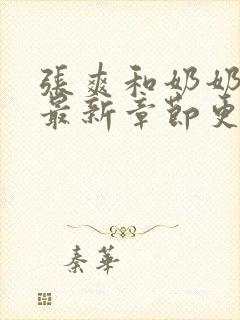 張爽和奶奶
最新章節更
秦華